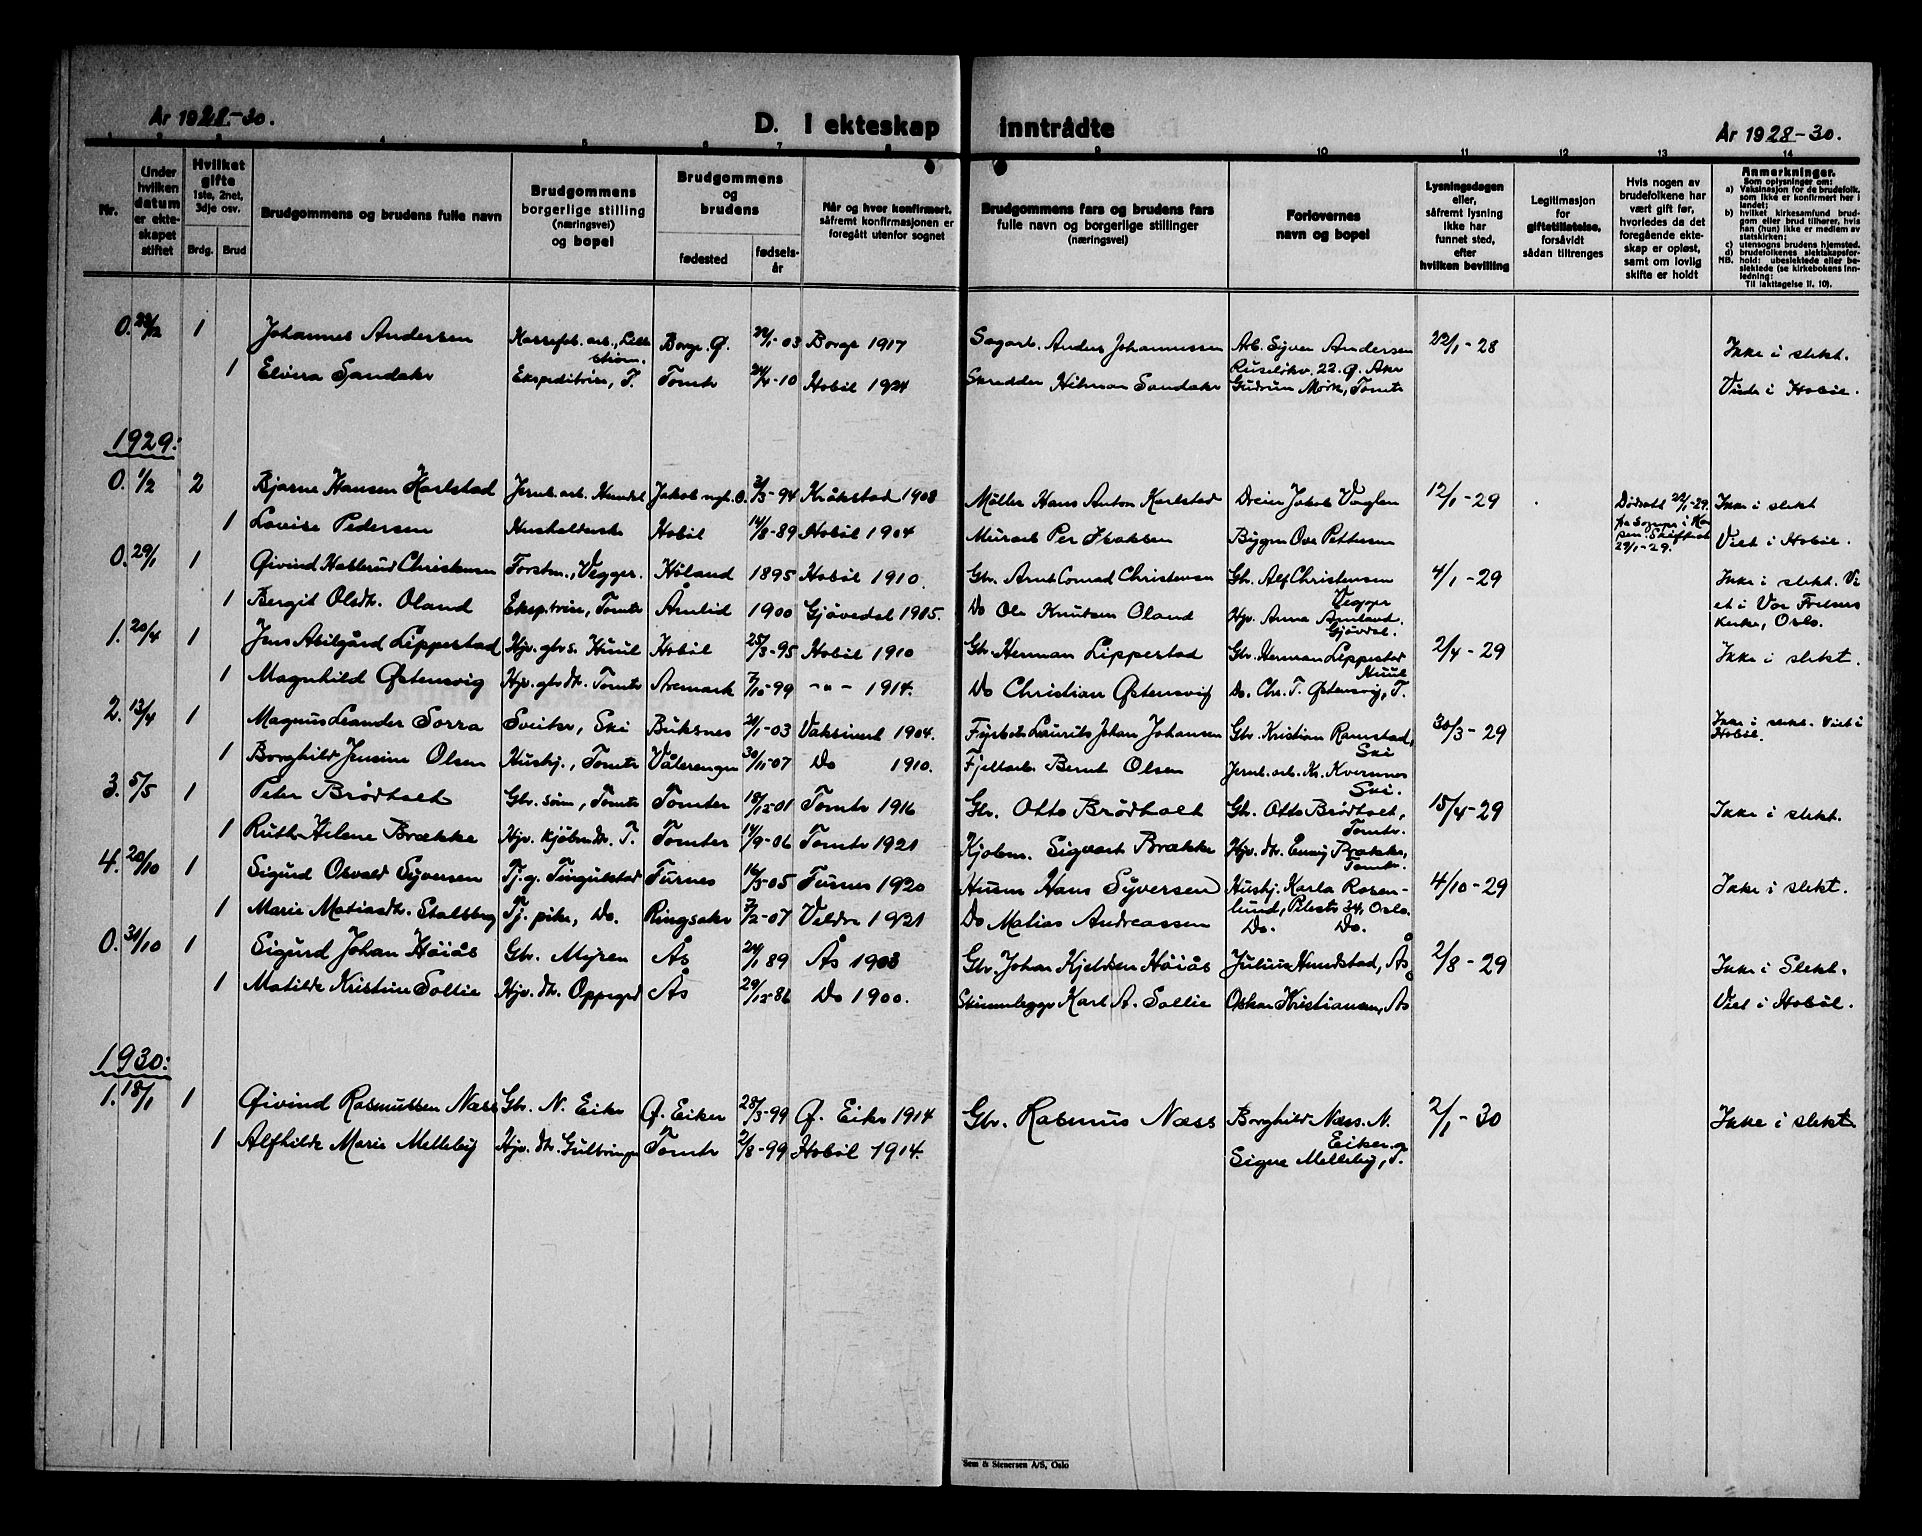 År 1928-30.
D. I ekteskap inntrådte
År 1928-30.
1 2 3 4 5 6 7 8 9 10 11 12 13 14
Nr.
Under hvilken datum er ekteskapet stiftet
Hvilket gifte 1ste, 2net, 3dje osv.
Brdg. Brud
Brudgommens og brudens fulle navn
Brudgommens borgerlige stilling (næringsvei) og bopel
Brudgommens og brudens
fødested
fødselsår
Når og hvor konfirmert, såfremt konfirmasjonen er foregått utenfor sognet
Brudgommens fars og brudens fars fulle navn og borgerlige stillinger (næringsvei)
Forlovernes navn og bopel
Lysningsdagen eller, såfremt lysning ikke har funnet sted, efter hvilken bevilling
Legitimasjon for giftetillatelse, forsåvidt sådan tiltrenges
Hvis nogen av brudefolkene har vært gift før, hvorledes da det foregående ekteskap er opløst, samt om lovlig skifte er holdt
Anmerkninger.
Som oplysninger om:
a) Vaksinasjon for de brudefolk, som ikke er konfirmert her i landet;
b) hvilket kirkesamfund brudgom eller brud tilhører, hvis han (hun) ikke er medlem av statskirken;
c) utensogns brudens hjemsted.
d) brudefolkenes slektskapsforhold: ubeslektede eller beslektede (se kirkebokens innledning:
NB. Til iakttagelse II. 10).
0. 1 Johannes Andersen Borge. Ø. 22/1-03 Borge 1917 Sagarb. Anders Johannessen Arb. Syver Andersen 22/1-28 Ikke i slekt.
Ruseløkv. 22. Ø. Aker
1 Elvira Sandaker Ekspeditrise, T. Tomter 24/4-10 Hobøl 1924 Skredder Hilman Sandaker Gudrun Mørk, Tomter Viede i Hobøl.
1929:
0. 1/2 2 Bjarne Hansen Karlstad Jernb.arb. Kråkstad 1908 Møller Hans Anton Karlstad Dreier Jakob Vaglen 12/1-29 Ikke i slekt
1 Lovise Pedersen Husholderske Hobøl 14/8-89 Hobøl 1904 Murarb. Per Isaksen Byggm. Ove Pettersen 29/1-29. Viet i Hobøl.
0. 29/1 1 Øivind Kallerud Christensen Forstm., Vegger. Høland 1895 Hobøl 1910. Gbr. Arnt Conrad Christensen Gb. Alf Christensen 4/1-29 Ikke i slekt. Vi
Vegger
1 Bergit Olsdtr. Oland Eksp.trise, Tomter Åmlid 1900 Gjøvedal 1915. Do Ole Knutsen Oland Hjv. Anna Åmland. et i Vor Frelsers
Gjøvdal. kirke, Oslo.
1. 20/4 1 Jens Abilgård Lippestad Hjv. gbrs. Huul Hobøl 25/3-95 Hobøl 1910 Gbr. Herman Lippestad Gbr. Herman Lippestad 2/4-29 Ikke i slekt.
Huul
1 Magnhild Østensvig Hjv. gbdtr. Tomter Aremark 7/10-99 -"- 1914. Do Christian Østensvig Do. Chr. T. Østensvig, T.
2. 13/4 1 Magnus Leander Sorra Sveitser, Ski Buksnes 20/1-03 Vaksinert 1904. Fyrbøter Laurits Johan Johansen Gbr. Kristian Ramstad, 30/3-29 Ikke i slekt. Viet i
Ski Hobøl.
1 Borghild Jensine Olsen Hushj., Tomter Vålerengen 30/11-07 Do 1910. Fjellarb. Bernt Olsen Jernb.arb. Kr. Kvernnes
Ski.
3. 5/5 1 Peter Brødholt Gbr. sønn, Tomter Tomter 18/12-01 Tomter 1916 Gbr. Otto Brødholt Gbr. Otto Brødholt, 15/4-29 Ikke i slekt.
Tomter.
1 Ruth Helene Brække Hjv. kjøbm.dtr. T. Tomter 14/9-06 Tomter 1921 Kjøbm. Sigvart Brække Hjv. dtr. Brække,
Tomter.
4. 20/10 1 Sigurd Osvald Syversen Tj.g. Tingulstad Furnes 16/3-05 Furnes 1920 Husm. Hans Syversen Hushj. Karla Rosen- 4/10-29 Ikke i slekt.
lund, Pilestr. 34, Oslo.
1 Marie Matiasdtr. Stalsberg Tj. pike, Do. Ringsaker 7/2-07 Veldre 1921 Do Matias Andreassen Do. Do.
0. 30/10 1 Sigurd Johan Høiås Gbr. Myren Ås 24/1 89 Ås 1903 Gbr. Johan Kjeldsen Høiås Julius Hundstad, Ås 2/8-29 Ikke i Slekt.
1 Matilde Kristine Sollie Hjv. dtr. Oppegd Ås 29/12-86 Do 1900. Karl A. Sollie Oskar Kristiansen, Ås Viet i Hobøl.
1930:
1. 18/1 1 Øivind Rasmussen Næss Gbr. N. Eiker Ø. Eiker 28/3-99 Ø. Eiker 1914 Gbr. Rasmus Næss Borghild Næss. N. 2/1-30 Ikke i slekt
Eiker og
1 Alfhilde Marie Melleby Hjv. dtr. Gulbringe Tomter 2/8-99 Hobøl 1914. Signe Melleby, T.
Sem & Stenersen A/S, Oslo